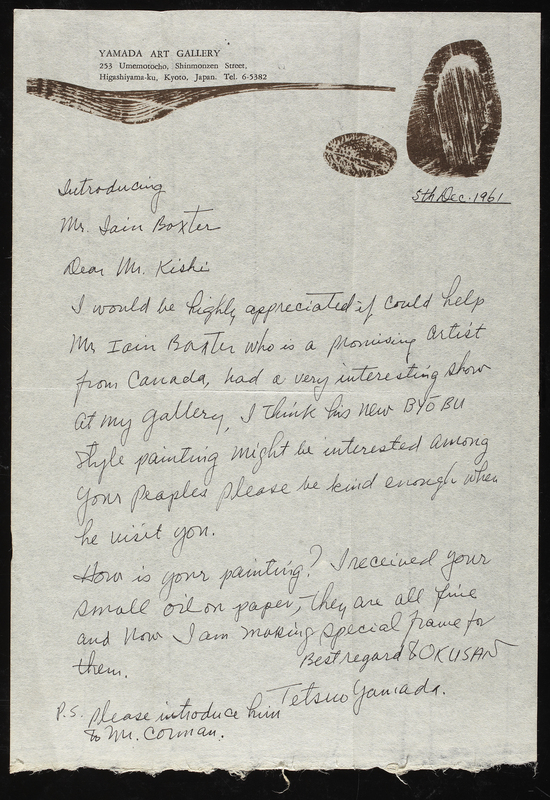 YAMADA ART GALLERY
253 Umemotocho, Shinmonzen Street,
Higashiyama-ku, Kyoto, Japan. Tel. 6-5382
5th Dec. 1961
Introducing
Mr. Iain Baxter
Dear Mr. Kishi
I would be highly appreciated if could help
Mr Iain Baxter who is a promising artist
from Canada, had a very interesting show
at my gallery, I think his new BYŌBU
style painting might be interested among
your peoples please be kind enough when
he visit you.
How is your painting? I received your
small oil on paper, they are all fine
and now I am making special frame for
them.
Best regard & OKUSAN
Tetsuo Yamada.
P.S. please introduce him
to Mr. Corman.